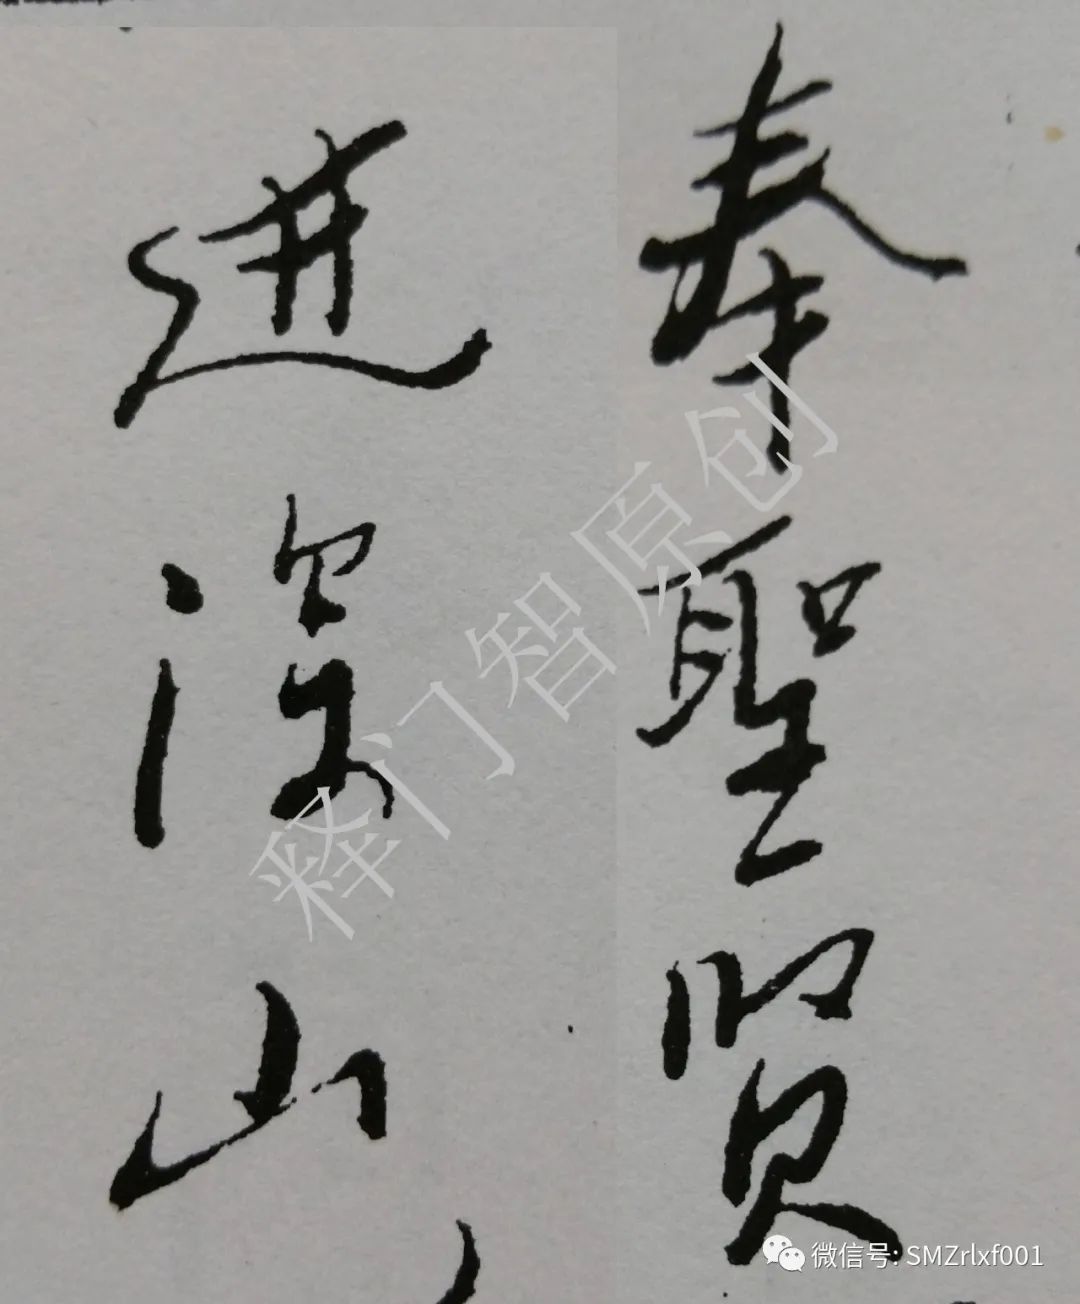 奉聖贤
进深山
释门智原创
微信号: SMZrlxf001